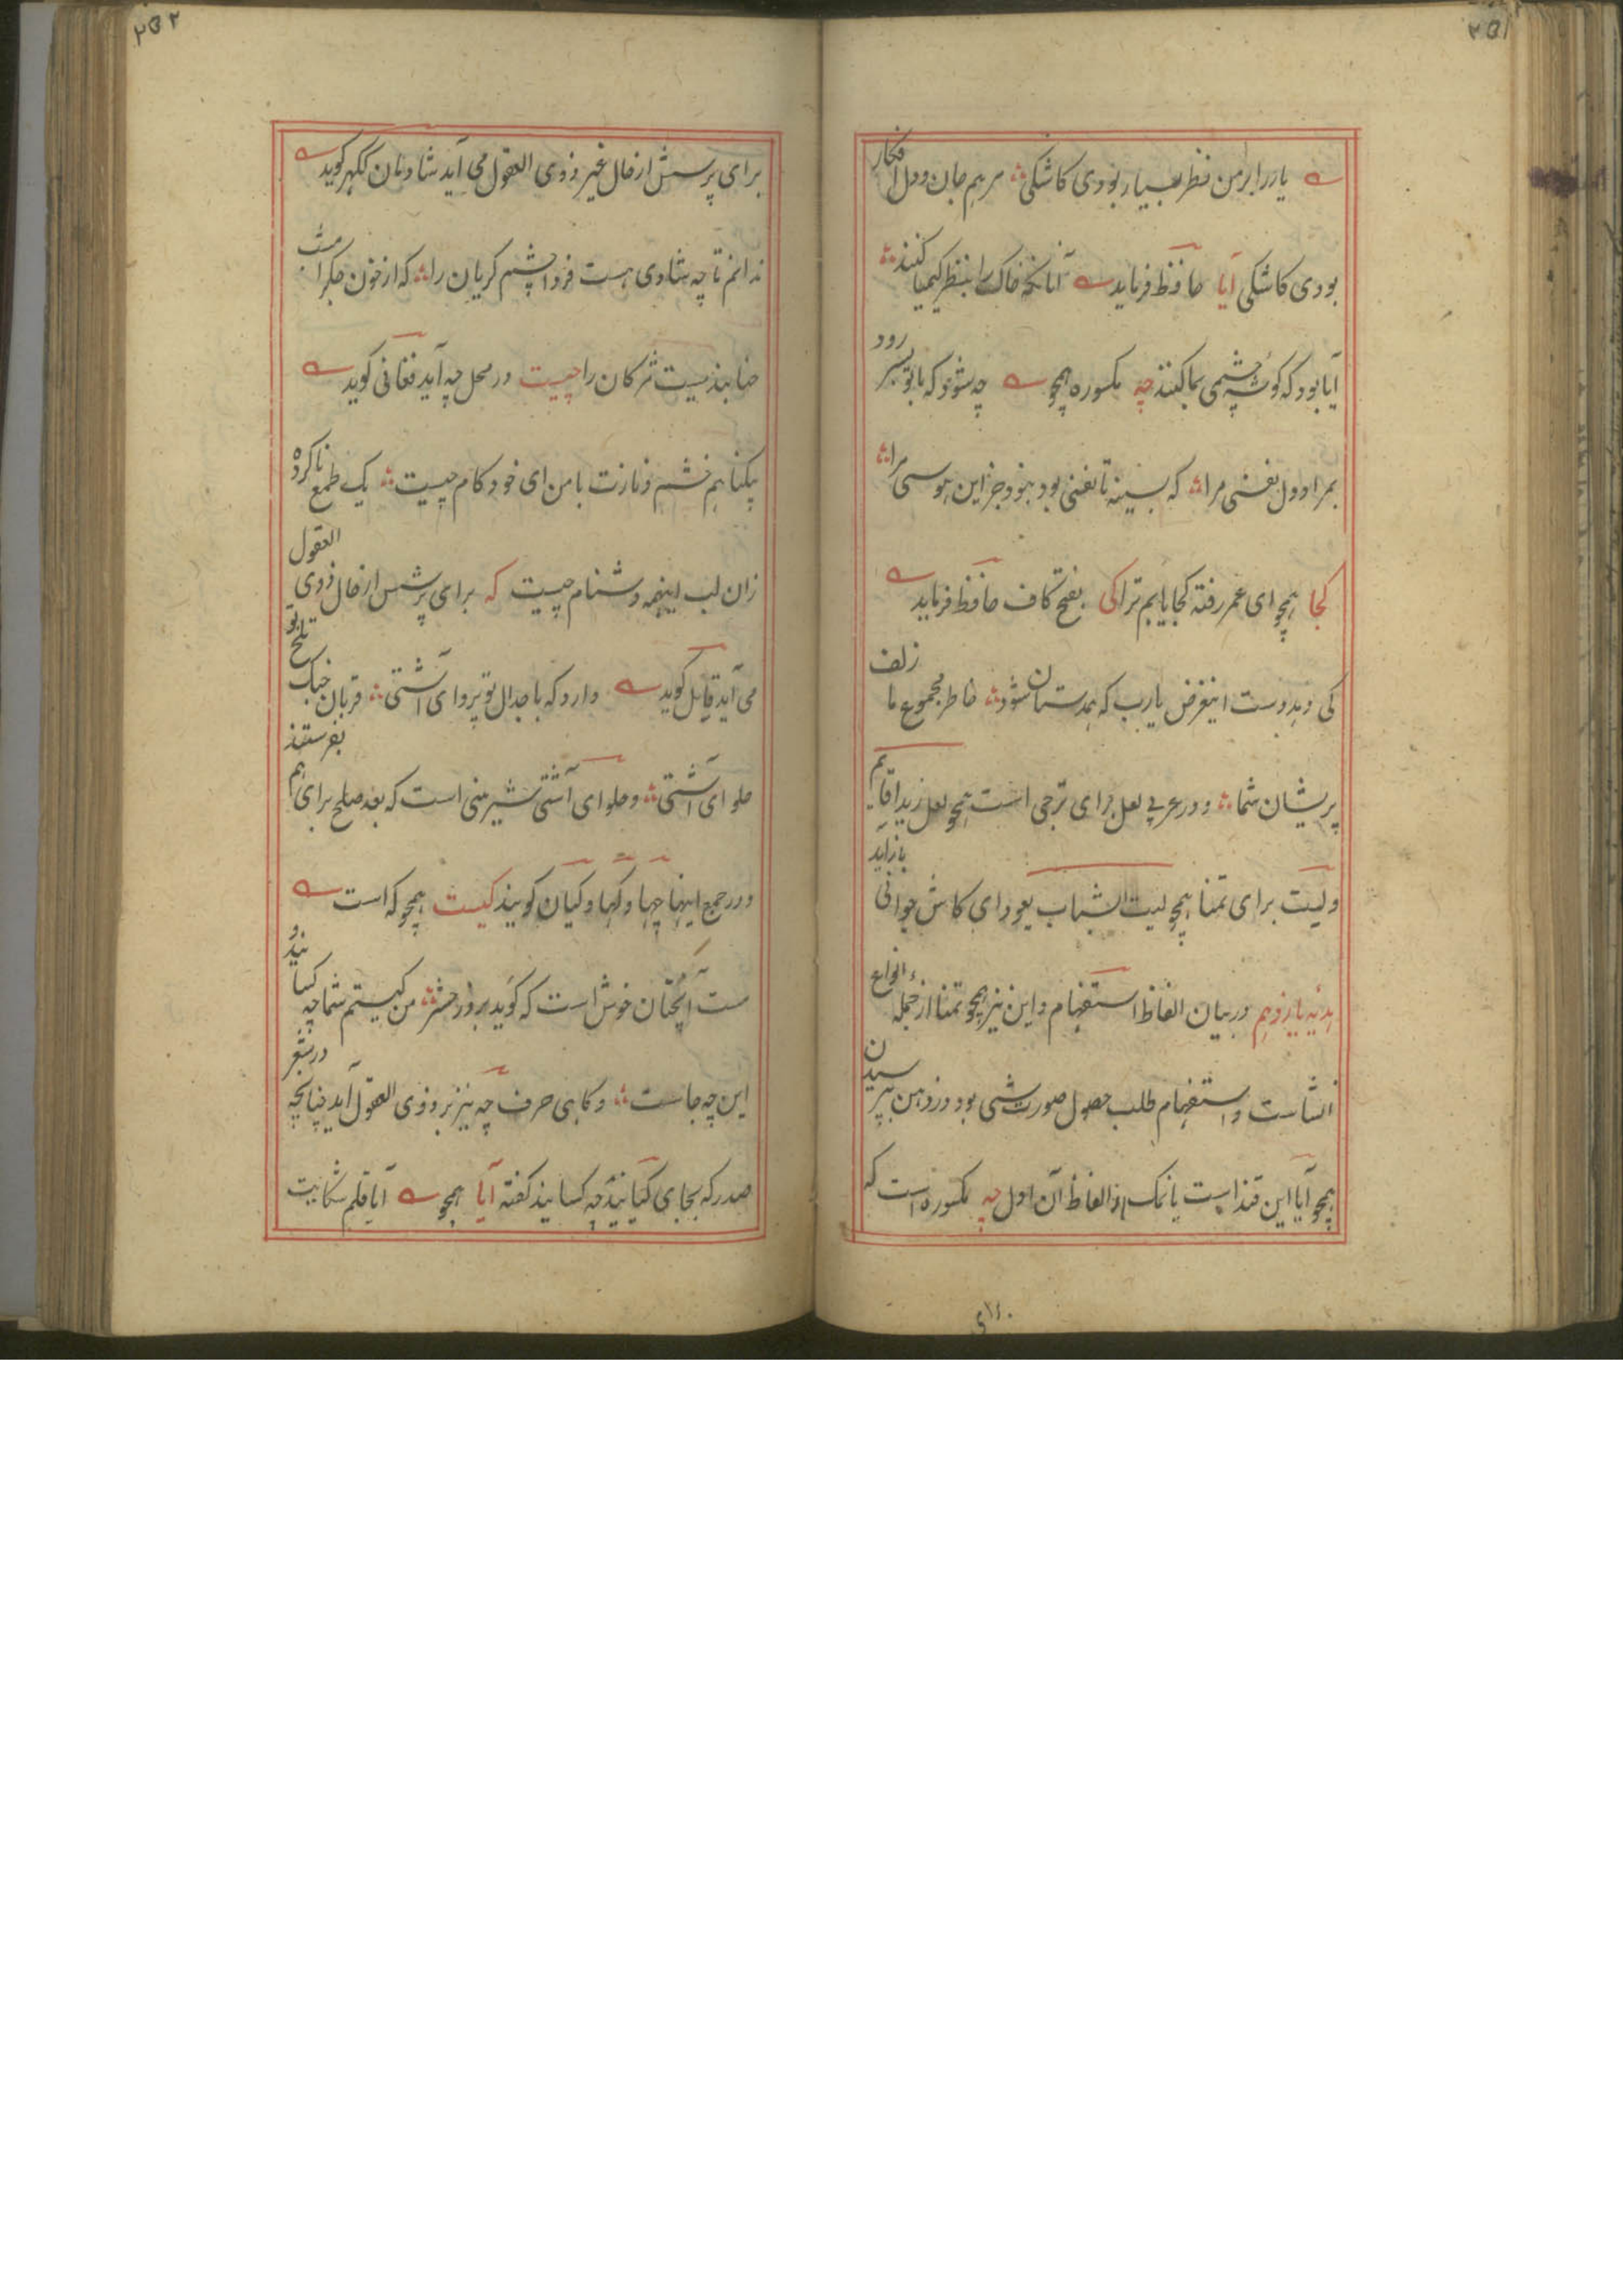 ۲۵۱
یار را بر من نظر بسیار بودی کاشکی مرهم جان و دل افکار
بودی کاشکی آیا حافظ فرماید آنانکه خاک را بنظر کیمیا کنند
آیا بود که گوشه چشمی بما کنند چه مکسوره همچو چه شود که با تو بسر رود
بمراد دل نفسی مرا که بسینه تا نفسی بود نبود جز این هوسی مرا
کجا همچو ای عمر رفته کجا یابم ترا کی بفتح کاف حافظ فرماید
کی دهد دست اینغرض یارب که همدستان شود خاطر مجموع ما زلف
پریشان شما و در عربی لعل برای ترجی است همچو لعل زیدا قایم
ولیت برای تمنا همچو لیت الشباب یعود ای کاش جوانی باز آید
هدیه یازدهم در بیان الفاظ استفهام و این نیز همچو تمنا از جمله انواع
انشاست و استفهام طلب حصول صورت شی بود در ذهن بپرسیدن
همچو آیا این قند است یا نمک از الفاظ آن اول چه مکسوره است که
۲۵۲
برای پرسش از حال غیر ذوی العقول می آید شادمان ککهر گوید
ندانم تا چه شادی هست فردا چشم گریان را که از خون جگر امشب
حنا بندیست مژگان را چیست در محل چه آید فغانی گوید
بیگناهم خشم و نازت با من ای خودکام چیست یک طمع ناکرده
زان لب اینهمه دشنام چیست که برای پرسش از حال ذوی العقول
می آید قایل گوید دارد که با جدال تو پروای آشتی قربان جنگ تو تلخ
حلوای آشتی و حلوای آشتی شیرینی است که بعد صلح برای هم بفرستند
و در جمع اینها چها و کها و کیان گویند کیست همچو که است
مست آنچنان خوش است که گوید بروز حشر من کیستم شما چه کسانید و
این چه جاست و گاهی حرف چه نیز بر ذوی العقول آید چنانچه در شعر
صدر که بجای کیانید چه کسانید گفته آیا همچو آیا قلم شکایت